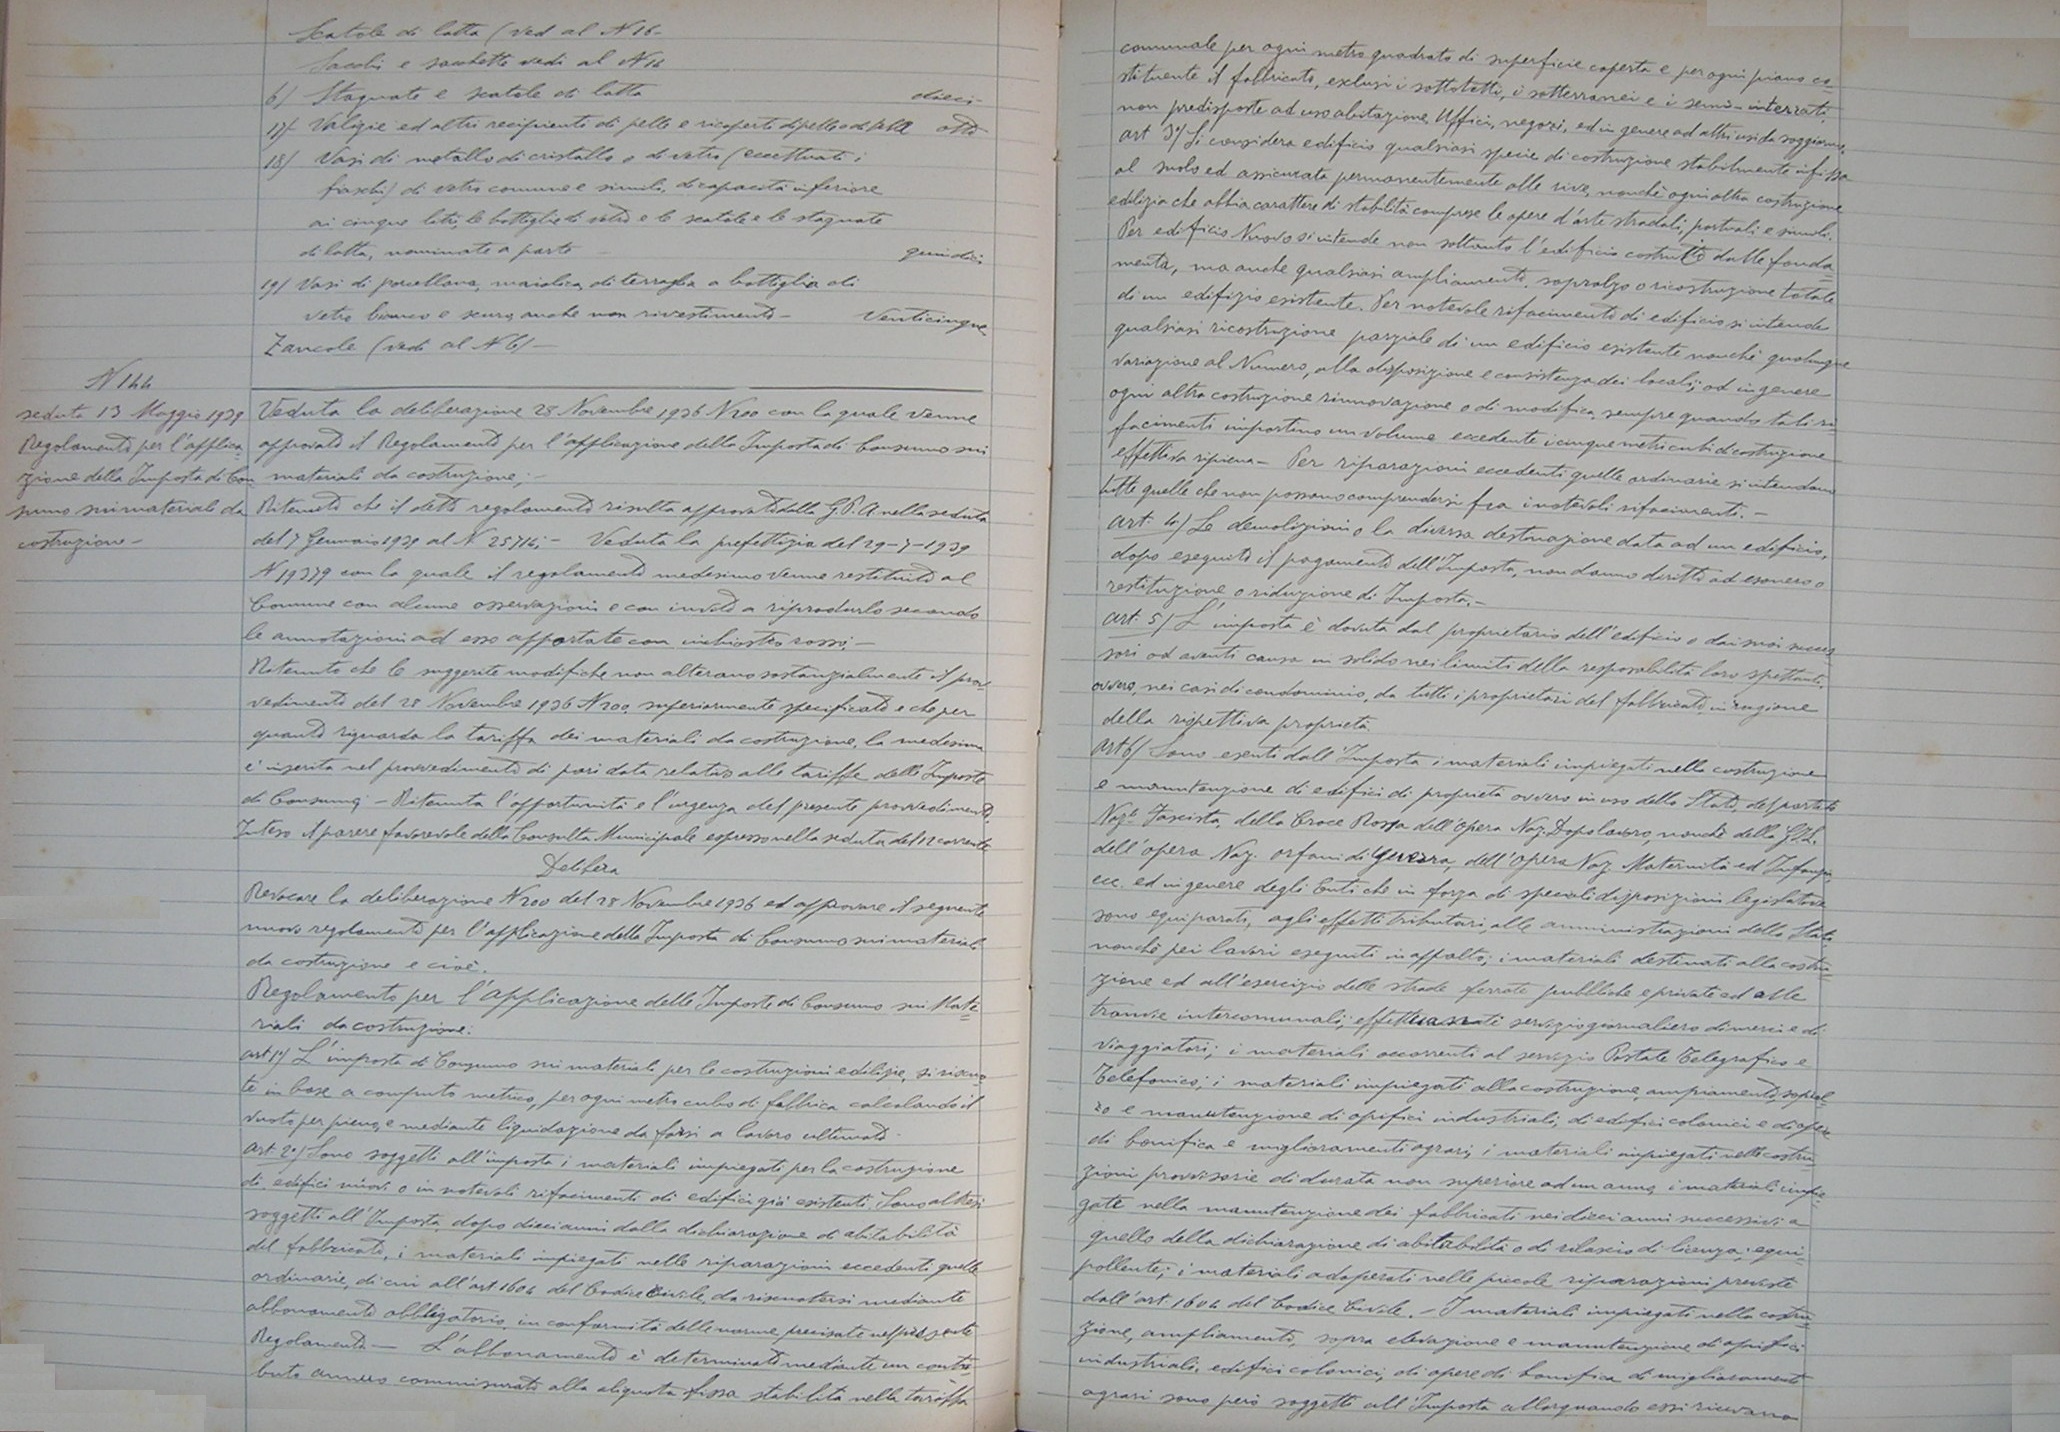 Scatole di latta (Ved al N 16-
Sacchi e sacchetti vedi al N 14
6/ Stagnate e scatole di latta dieci-
17/- Valigie ed altri recipienti di pelle e ricoperti di pelle o di tela otto
18/ Vasi di metallo di cristallo o di vetro (eccettuati i
fiaschi) di vetro comune e simili, di capacità inferiore
ai cinque litri, le bottiglie di vetro e le scatole e le stagnate
di latta, nominate a parte - quindici
19/ Vasi di porcellana, maiolica, di terraglia o bottiglia di
vetro bianco e scuro, anche non rivestimento - Venticinque
Zangole (vedi al N 6) -
N 144
seduta 13 Maggio 1939
Regolamento per l'applica-
zione della Imposta di Con
sumo sui materiali da
costruzione -
Veduta la deliberazione 28 Novembre 1936 N 200 con la quale venne
approvato il Regolamento per l'applicazione della Imposta di Consumo sui
materiali da costruzione; -
Ritenuto che il detto regolamento risulta approvato dalla G.P.A nella seduta
del 7 Gennaio 1939 al N 25714; - Veduta la prefettizia del 29-7-1939
N 19379 con la quale il regolamento medesimo venne restituito al
Comune con alcune osservazioni e con invito a riprodurlo secondo
le annotazioni ad esso apportate con inchiostro rosso; -
Ritenuto che le suggerite modifiche non alterano sostanzialmente il prov-
vedimento del 28 Novembre 1936 N 200, superiormente specificato e che per
quanto riguarda la tariffa dei materiali da costruzione, la medesima
è inserita nel provvedimento di pari data relativo alle tariffe delle Imposte
di Consumo; - Ritenuta l'opportunità e l'urgenza del presente provvedimento,
Inteso il parere favorevole della Consulta Municipale espresso nella seduta del 12 corrente
Delibera
Revocare la deliberazione N 200 del 28 Novembre 1936 ed approvare il seguente
nuovo regolamento per l'applicazione della Imposta di Consumo sui materiali
da costruzione e cioè.
Regolamento per l'applicazione delle Imposte di Consumo sui Mate=
riali da costruzione.
art 1°/ L'imposta di Consumo sui materiali per le costruzioni edilizie, si riscuo-
te in base a computo metrico, per ogni metro cubo di fabbrica calcolando il
vuoto per pieno, e mediante liquidazione da farsi a lavoro ultimato.
Art 2°/ Sono soggetti all'imposta i materiali impiegati per la costruzione
di edifici nuovi o in notevoli rifacimenti di edifici già esistenti. Sono altresì
soggetti all'Imposta, dopo dieci anni dalla dichiarazione di abitabilità
del fabbricato, i materiali impiegati nelle riparazioni eccedenti quelle
ordinarie, di cui all'art 1604 del Codice Civile, da riscuotersi mediante
abbonamento obbligatorio, in conformità delle norme precisate nel presente
Regolamento - L'abbonamento è determinato mediante un contri-
buto annuo commisurato alla aliquota fissa stabilita nella tariffa
comunale per ogni metro quadrato di superficie coperta e per ogni piano co-
stituente il fabbricato, esclusi i sottotetti, i sotterranei e i semi-interrati
non predisposte ad uso abitazione, Uffici, negozi, ed in genere ad altri usi da soggiorno.
art 3°/ Si considera edificio qualsiasi specie di costruzione stabilmente infissa
al suolo ed assicurata permanentemente alle rive, nonchè ogni altra costruzione
edilizia che abbia carattere di stabilità comprese le opere d'arte stradali, portuali e simili.
Per edificio Nuovo si intende non soltanto l'edificio costruito dalle fonda-
menta, ma anche qualsiasi ampliamento, sopralzo o ricostruzione totale
di un edifizio esistente. Per notevole rifacimento di edificio si intende
qualsiasi ricostruzione parziale di un edificio esistente nonchè qualunque
variazione al Numero, alla disposizione e consistenza dei locali; od in genere
ogni altra costruzione rinnovazione o di modifica, sempre quando tali ri-
facimenti importino un volume eccedente i cinque metri cubi di costruzione
effettiva ripiena - Per riparazioni eccedenti quelle ordinarie si intendono
tutte quelle che non possono comprendersi fra i notevoli rifacimenti. -
Art. 4/ Le demolizioni o la diversa destinazione data ad un edificio,
dopo eseguito il pagamento dell'Imposta, non danno diritto ad esonero o
restituzione o riduzione di Imposta. -
art. 5/ L'imposta è dovuta dal proprietario dell'edificio o dai suoi succes-
sori od aventi causa in solido nei limiti della responsabilità loro spettanti,
ovvero, nei casi di condominio, da tutti i proprietari del fabbricato, in ragione
della rispettiva proprietà.
Art 6/ Sono esenti dall'Imposta i materiali impiegati nella costruzione
e manutenzione di edifici di proprietà ovvero in uso dello Stato, del partito
Naz.le Fascista, della Croce Rossa dell'Opera Naz. Dopolavoro, nonchè della G.I.L.
dell'opera Naz. orfani di guerra, dell'Opera Naz. Maternità ed Infanzia,
ecc. ed in genere degli Enti che in forza di speciali disposizioni legislative
sono equiparati, agli effetti tributari, alle amministrazioni dello Stato
nonchè pei lavori eseguiti in appalto; i materiali destinati alla costru-
zione ed all'esercizio delle strade ferrate pubbliche e private ed alle
tramvie intercomunali; effettuanti servizio giornaliero di merci e di
Viaggiatori; i materiali occorrenti al servizio Postale Telegrafico e
Telefonico; i materiali impiegati alla costruzione ampiamento, sopral-
zo e manutenzione di opifici industriali, di edifici colonici e di opere
di bonifica e miglioramenti agrari; i materiali impiegati nelle costru-
zioni provvisorie di durata non superiore ad un anno, i materiali impie-
gati nella manutenzione dei fabbricati nei dieci anni successivi a
quello della dichiarazione di abitabilità o di rilascio di licenza; equi-
pollente; i materiali adoperati nelle piccole riparazioni previste
dall'art. 1604 del Codice Civile. - I materiali impiegati nella costru-
zione, ampliamento, sopra elevazione e manutenzione di opifici
industriali, edifici colonici, di opere di bonifica di miglioramento
agrari sono però soggetti all'Imposta allorquando essi ricevano